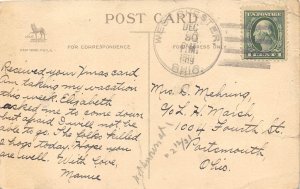 POST CARD
FOR CORRESPONDENCE
FOR ADDRESS
WEST
DEC
30
OHIO.
Received your Xmas card
I'm taking my vacation
this week. Elizabeth
asked me to come down
but afraid I will not be
able to go. The folks killed
a hogs today. Hope you
are well. With love,
Mamie
Mrs. D. Mehring,
c/o L. H. March,
1004 Fourth St.
Portsmouth
Ohio.